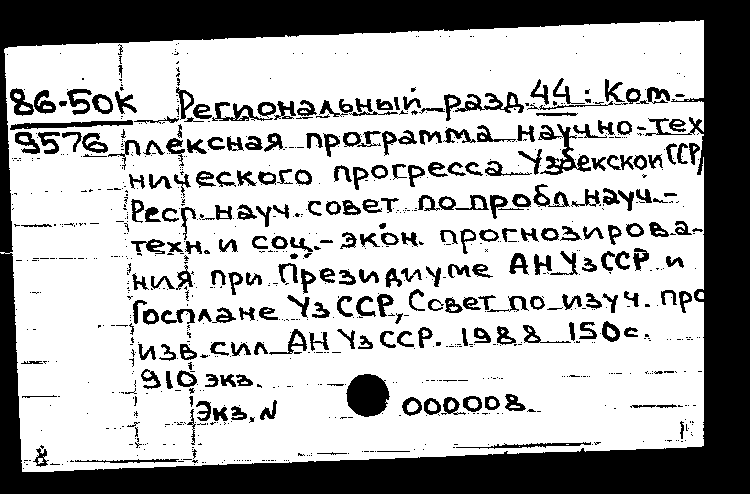 86-50К Региональный разд. 44: Ком-
9576 плексная программа научно-тех
нического прогресса Узбекской ССР/
Респ. науч. совет по пробл. науч.-
техн. и соц.-экон. прогнозирова-
ния при Президиуме АН УзССР и
Госплане УзССР, Совет по изуч. про
изв. сил АН УзССР. 1988 150с.
910 экз.
Экз. N 000008.
8